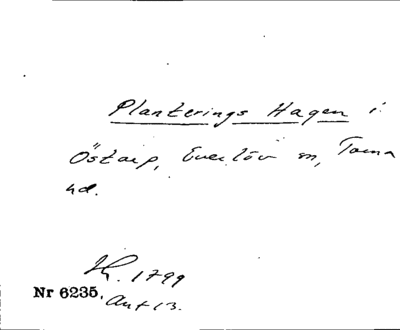 Planterings Hagen i
Östarp, Everlöv sn, Torna
hd.
Sk. 1799
Nr 6235. Akt 13.